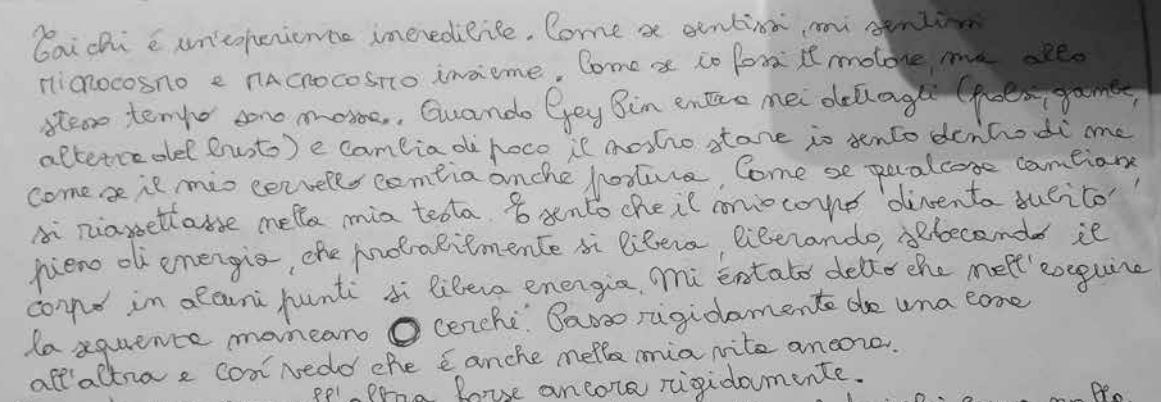 Tai chi é un'esperienza incredibile. Come se sentissi, mi sentissi
MICROCOSMO e MACROCOSMO insieme. Come se io fossi il motore, ma allo
stesso tempo sono mossa.. Quando Gey Pin entra nei dettagli (polsi, gambe,
altezza del busto) e cambia di poco il nostro stare io sento dentro di me
come se il mio cervello cambia anche postura. Come se qualcosa cambiasse
si riassettasse nella mia testa. E sento che il mio corpo diventa subito
pieno di energia, che probabilmente si libera, liberando, sbloccando il
corpo in alcuni punti si libera energia. Mi é stato detto che nell'eseguire
la sequenza mancano O cerchi. Passo rigidamente da una cosa
all'altra e così vedo che é anche nella mia vita ancora.
all'altra forse ancora rigidamente.